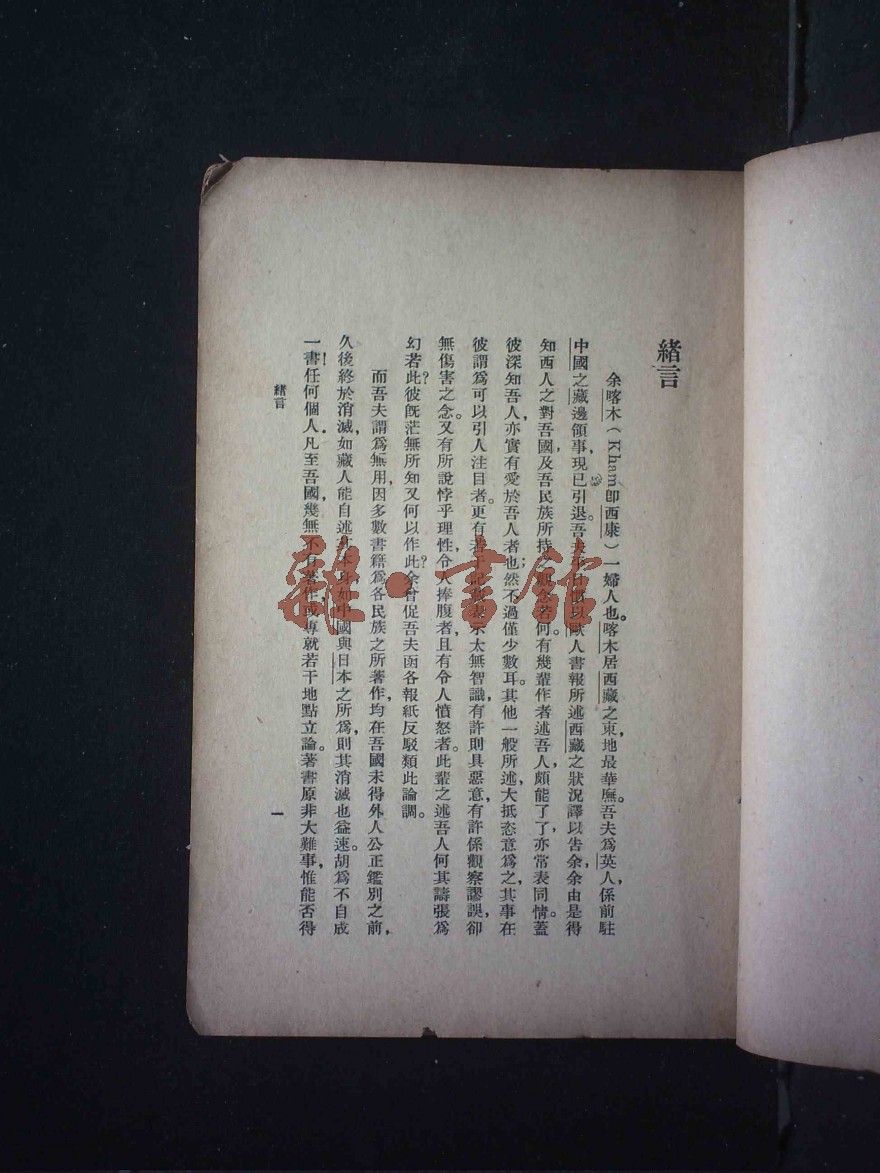 緒言
余喀木（Kham卽西康）一婦人也。喀木居西藏之東，地最華廡。吾夫爲英人，係前駐
中國之藏邊領事，現已引退。吾夫以歐人書報所述西藏之狀況譯以告余，余由是得
知西人之對吾國及吾民族所持之觀念若何。有幾輩作者述吾人，頗能了了，亦常表同情。蓋
彼深知吾人，亦實有愛於吾人者也；然不過僅少數耳。其他一般所述，大抵恣意爲之，其事在
彼謂爲可以引人注目者。更有若干記載表示太無智識，有許則具惡意，有許係觀察謬誤，卻
無傷害之念。又有所說悖乎理性，令人捧腹者，且有令人憤怒者。此輩之述吾人何其譸張爲
幻若此？彼旣茫無所知又何以作此？余曾促吾夫函各報紙反駁類此論調。
而吾夫謂爲無用，因多數書籍爲各民族之所著作，均在吾國未得外人公正鑑別之前，
久後終於消滅，如藏人能自述其本身如中國與日本之所爲，則其消滅也益速。胡爲不自成
一書！任何個人，凡至吾國，幾無不有著作，或專就若干地點立論。著書原非大難事，惟能否得
緒言
一
雜·書館